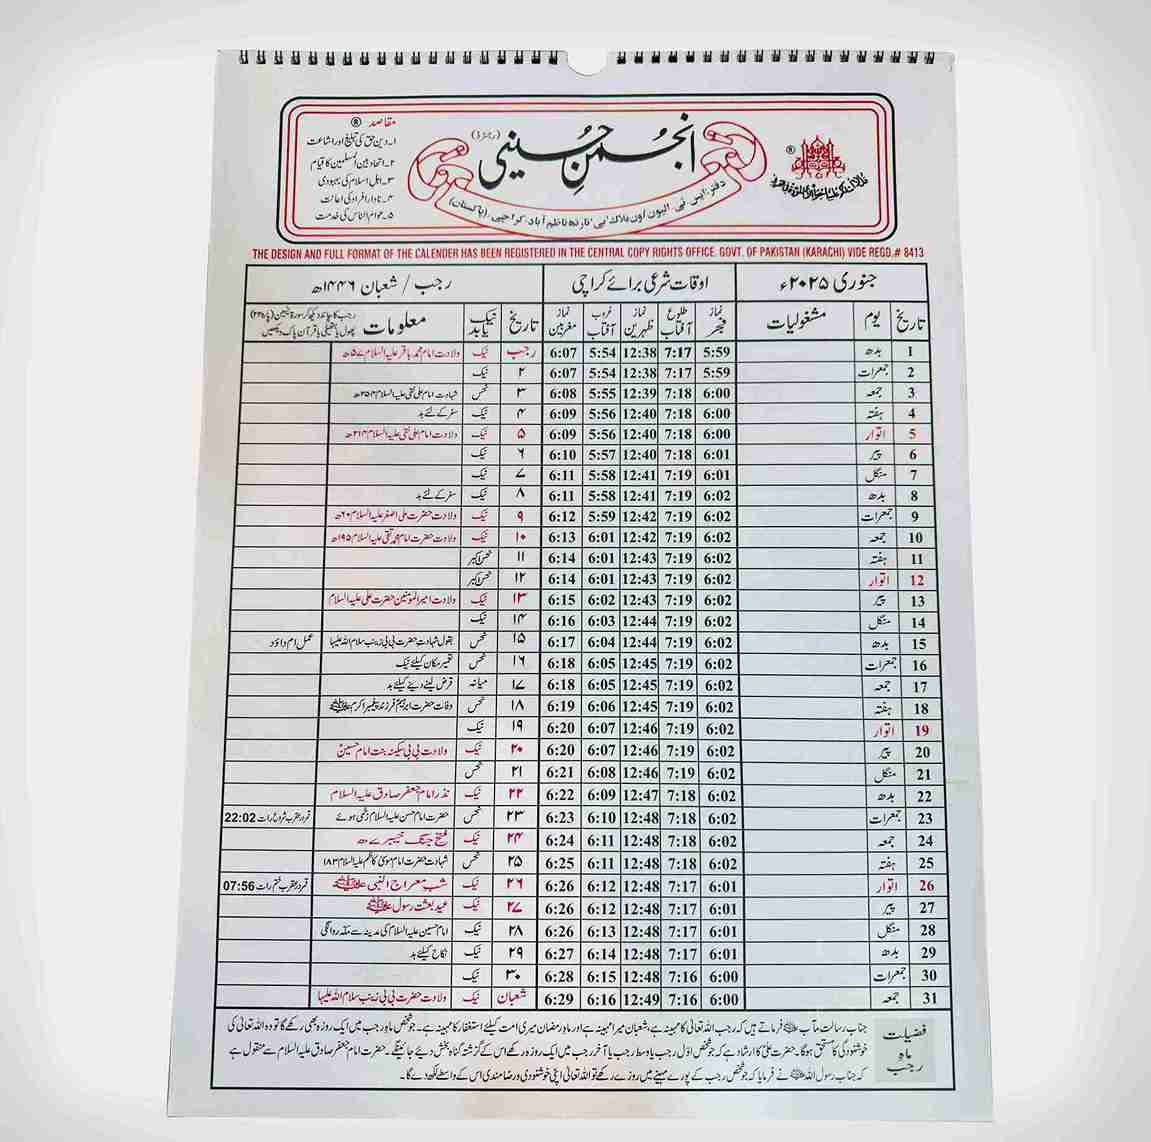 مقاصد ®
۱۔ دین حق کی تبلیغ اور اشاعت
۲۔ اتحاد بین المسلمین کا قیام
۳۔ اہل اسلام کی بہبودی
۴۔ نادار افراد کی اعانت
۵۔ عوام الناس کی خدمت
انجمن حسینی (رجسٹرڈ)
®
THE DESIGN AND FULL FORMAT OF THE CALENDER HAS BEEN REGISTERED IN THE CENTRAL COPY RIGHTS OFFICE. GOVT. OF PAKISTAN (KARACHI) VIDE REGD.# 8413
جنوری ۲۰۲۵ء اوقات شرعی برائے کراچی رجب / شعبان ۱۴۴۶ھ
تاریخ یوم مشغولیات نماز فجر طلوع آفتاب نماز ظہرین غروب آفتاب نماز مغربین تاریخ نیک یا بد معلومات
1 بدھ 5:59 7:17 12:38 5:54 6:07 رجب نیک ولادت امام محمد باقر علیہ السلام ۵۷ھ
2 جمعرات 5:59 7:17 12:38 5:54 6:07 ۲ نیک
3 جمعہ 6:00 7:18 12:39 5:55 6:08 ۳ نحس شہادت امام علی نقی علیہ السلام ۲۵۴ھ
4 ہفتہ 6:00 7:18 12:40 5:56 6:09 ۴ نیک سفر کے لئے بد
5 اتوار 6:00 7:18 12:40 5:56 6:09 ۵ نیک ولادت امام علی نقی علیہ السلام ۲۱۴ھ
6 پیر 6:01 7:18 12:40 5:57 6:10 ۶ نیک
7 منگل 6:01 7:19 12:41 5:58 6:11 ۷ نیک
8 بدھ 6:02 7:19 12:41 5:58 6:11 ۸ نیک سفر کے لئے بد
9 جمعرات 6:02 7:19 12:42 5:59 6:12 ۹ نیک ولادت حضرت علی اصغر علیہ السلام ۶۰ھ
10 جمعہ 6:02 7:19 12:42 6:01 6:13 ۱۰ نیک ولادت حضرت امام محمد تقی علیہ السلام ۱۹۵ھ
11 ہفتہ 6:02 7:19 12:43 6:01 6:14 ۱۱ نحس اکبر
12 اتوار 6:02 7:19 12:43 6:01 6:14 ۱۲ نحس اکبر
13 پیر 6:02 7:19 12:43 6:02 6:15 ۱۳ نیک ولادت امیر المومنین حضرت علی علیہ السلام
14 منگل 6:02 7:19 12:44 6:03 6:16 ۱۴ نیک
15 بدھ 6:02 7:19 12:44 6:04 6:17 ۱۵ نحس بقول شہادت حضرت بی بی زینب سلام اللہ علیہا عمل ام داؤد
16 جمعرات 6:02 7:19 12:45 6:05 6:18 ۱۶ نحس تعمیر مکان کیلئے نیک
17 جمعہ 6:02 7:19 12:45 6:05 6:18 ۱۷ میانہ قرض لینے دینے کیلئے بد
18 ہفتہ 6:02 7:19 12:45 6:06 6:19 ۱۸ نحس وفات حضرت ابراہیم فرزند پیغمبر اکرم ﷺ
19 اتوار 6:02 7:19 12:46 6:07 6:20 ۱۹ نیک
20 پیر 6:02 7:19 12:46 6:07 6:20 ۲۰ نیک ولادت بی بی سکینہ بنت امام حسینؑ
21 منگل 6:02 7:19 12:46 6:08 6:21 ۲۱ نحس
22 بدھ 6:02 7:18 12:47 6:09 6:22 ۲۲ نیک نذر امام جعفر صادق علیہ السلام
23 جمعرات 6:02 7:18 12:48 6:10 6:23 ۲۳ نحس حضرت امام حسن علیہ السلام زخمی ہوئے قمر در عقرب شروع رات 22:02
24 جمعہ 6:02 7:18 12:48 6:11 6:24 ۲۴ نیک فتح جنگ خیبر ۷ھ
25 ہفتہ 6:02 7:18 12:48 6:11 6:25 ۲۵ نحس شہادت حضرت امام موسیٰ کاظم علیہ السلام ۱۸۳
26 اتوار 6:01 7:17 12:48 6:12 6:26 ۲۶ نیک شب معراج النبی ﷺ قمر در عقرب ختم رات 07:56
27 پیر 6:01 7:17 12:48 6:12 6:26 ۲۷ نیک عید بعثت رسول ﷺ
28 منگل 6:01 7:17 12:48 6:13 6:26 ۲۸ نیک امام حسین علیہ السلام کی مدینہ سے مکہ روانگی
29 بدھ 6:01 7:17 12:48 6:14 6:27 ۲۹ نیک نکاح کیلئے بد
30 جمعرات 6:00 7:16 12:48 6:15 6:28 ۳۰ نیک
31 جمعہ 6:00 7:16 12:49 6:16 6:29 شعبان نیک ولادت حضرت بی بی زینب سلام اللہ علیہا
فضیلت ماہ رجب
جناب رسالت مآب ﷺ فرماتے ہیں کہ رجب اللہ تعالیٰ کا مہینہ ہے، شعبان میرا مہینہ ہے اور ماہ رمضان میری امت کیلئے استغفار کا مہینہ ہے۔ جو شخص ماہ رجب میں ایک روزہ بھی رکھے گا تو وہ اللہ تعالیٰ کی
خوشنودی کا مستحق ہوگا۔ حضرت علیؑ کا ارشاد ہے کہ جو شخص اول رجب یا وسط رجب یا آخر رجب میں ایک روزہ رکھے اس کے گزشتہ گناہ بخش دیئے جائینگے۔ حضرت امام جعفر صادق علیہ السلام سے منقول ہے
کہ جناب رسول اللہ ﷺ نے فرمایا کہ جو شخص رجب کے پورے مہینے میں روزے رکھے تو اللہ تعالیٰ اپنی خوشنودی و رضا مندی اس کے واسطے لکھ دے گا۔